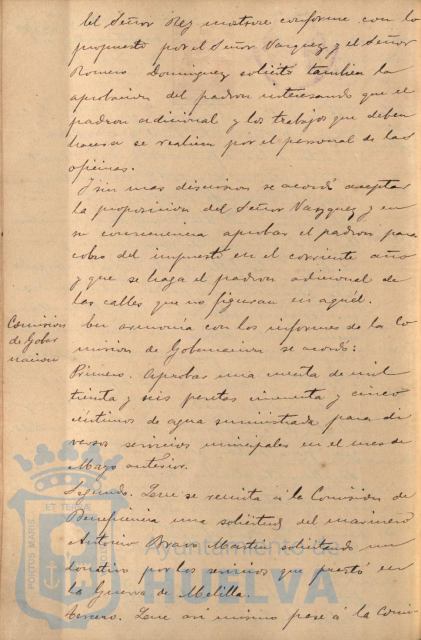 El Señor Rey mostrose conforme con lo
propuesto por el Señor Vazquez y el Señor
Romero Dominguez solicitó tambien la
aprobacion del padron interesando que el
padron adicional y los trabajos que deben
hacerse se realicen por el personal de las
oficinas.
Y sin mas discusion se acordó aceptar
la proposicion del Señor Vazquez y en
su consecuencia aprobar el padron para
cobro del impuesto en el corriente año
y que se haga el padron adicional de
las calles que no figuran en aquel.
Comision
de Gober
nacion
En armonía con los informes de la Co
mision de Gobernacion se acordó:
Primero. Aprobar una cuenta de mil
treinta y seis pesetas cincuenta y cinco
céntimos de agua suministrada para di
versos servicios municipales en el mes de
Mayo anterior.
Segundo. Que se remita á la Comision de
Beneficencia una solicitud del marinero
Antonio Bravo Martin solicitando un
donativo por los servicios que prestó en
la Guerra de Melilla.
Tercero. Que asi mismo pase á la Comi-
PORTUS MARIS
ET TERRÆ
Ayuntamiento de
HUELVA